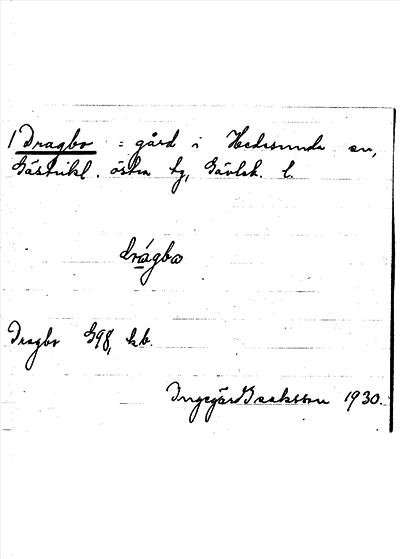 1 Dragbo : gård i Hedesunda sn,
Gästrikl. östra tg, Gävleb. l.
drágbo
Dragbo G98, kb.
Ingegärd Isaksson 1930.